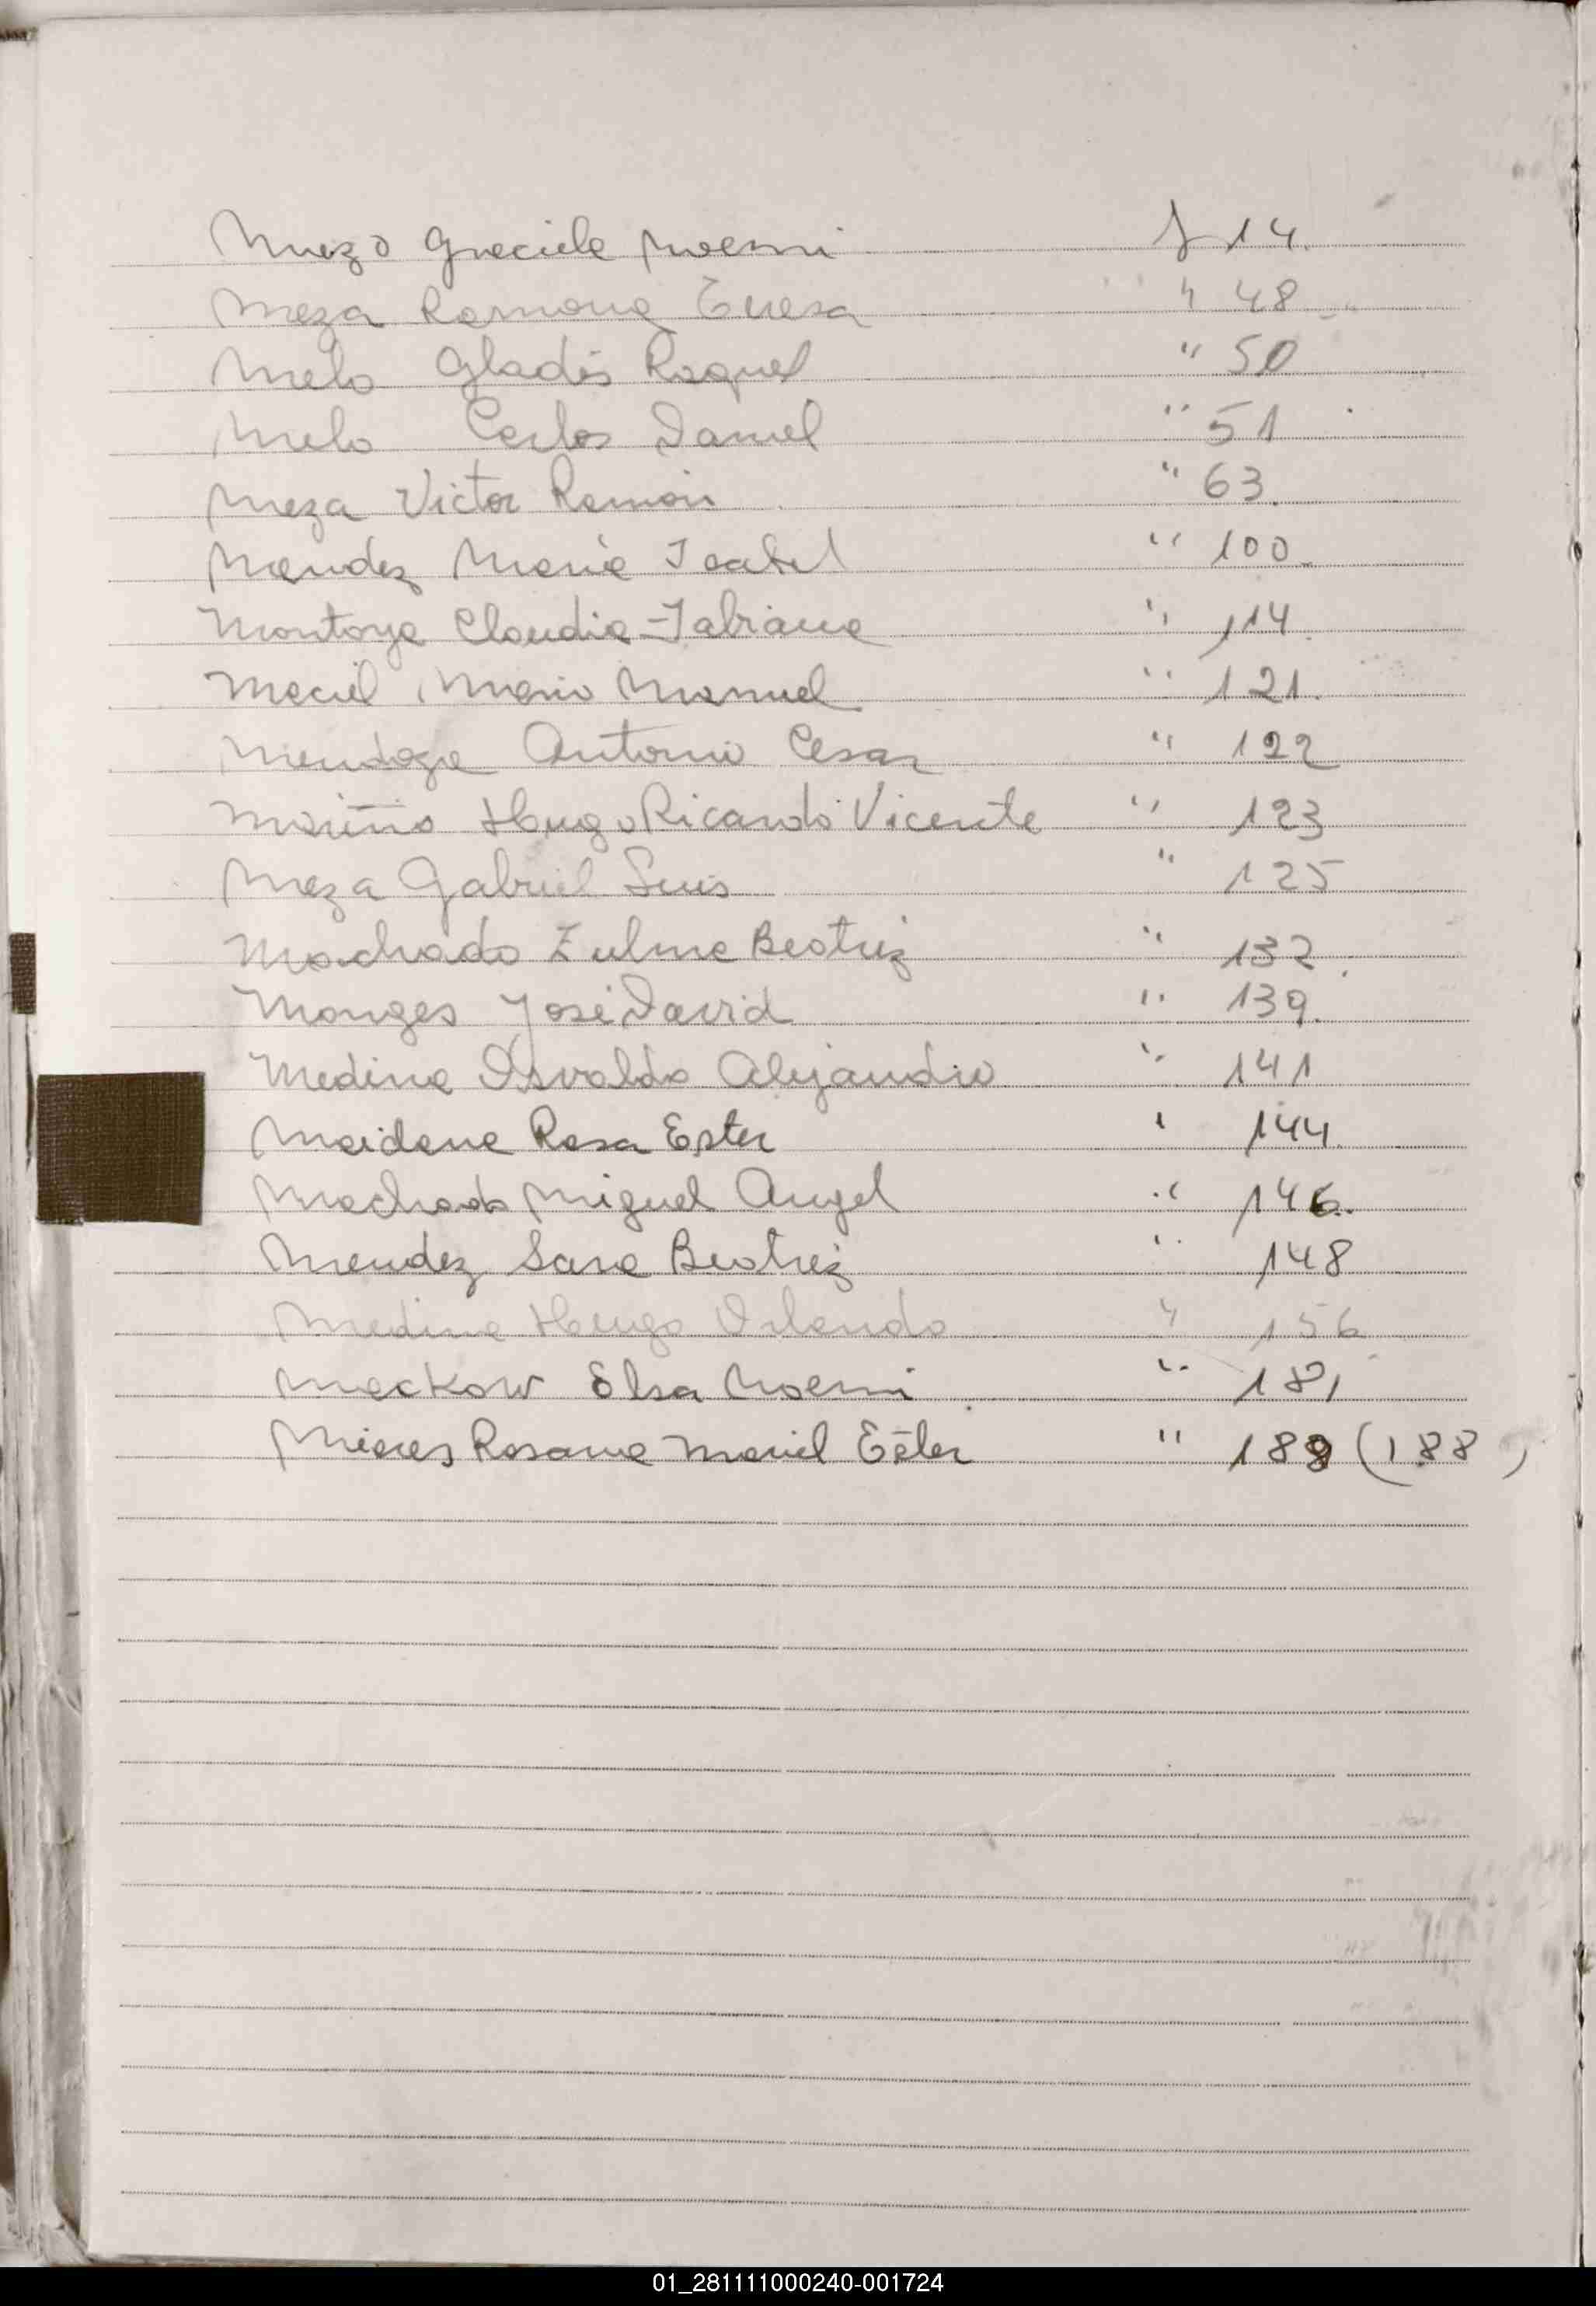 Meza Graciela Noemi f 14.
Meza Ramona Teresa " 48
Melo Gladis Raquel " 50
Melo Carlos Daniel " 51
Meza Victor Ramón " 63.
Mendez Maria Isabel " 100.
Montoya Claudia Fabiana " 114.
Maciel Mario Manuel " 121.
Mendoza Antonio Cesar " 122
Mariño Hugo Ricardo Vicente " 123
Meza Gabriel Luis " 125
Machado Zulma Beatriz " 132.
Monges José David " 139.
Medina Osvaldo Alejandro " 141
Maidana Rosa Ester " 144.
Machado Miguel Angel " 146.
Mendez Sara Beatriz " 148
Medina Hugo Orlando " 156
Mackow Elsa Noemi " 181
Mieres Rosana Mariel Ester " 189 (188)
01_281111000240-001724